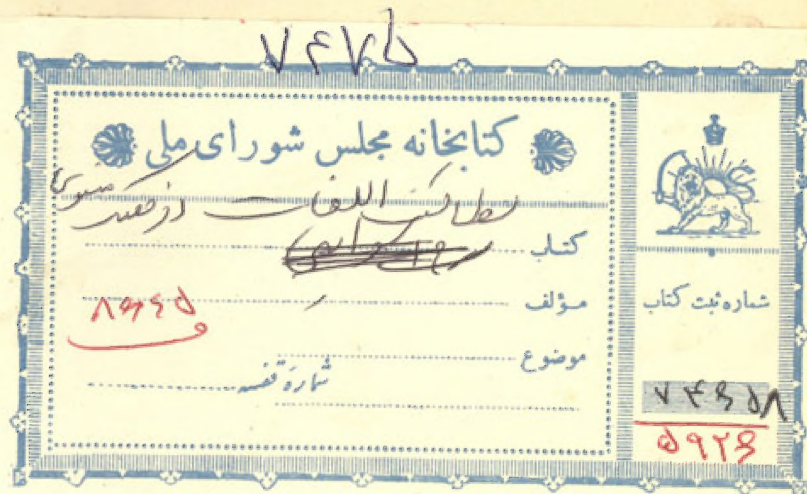 ۷۴۷۵
کتابخانه مجلس شورای ملی
لطائف اللغات
کتاب
مؤلف
موضوع
شماره قفسه
۸۶۴۵
شماره ثبت کتاب
۷۴۶۵۸
۵۹۲۶